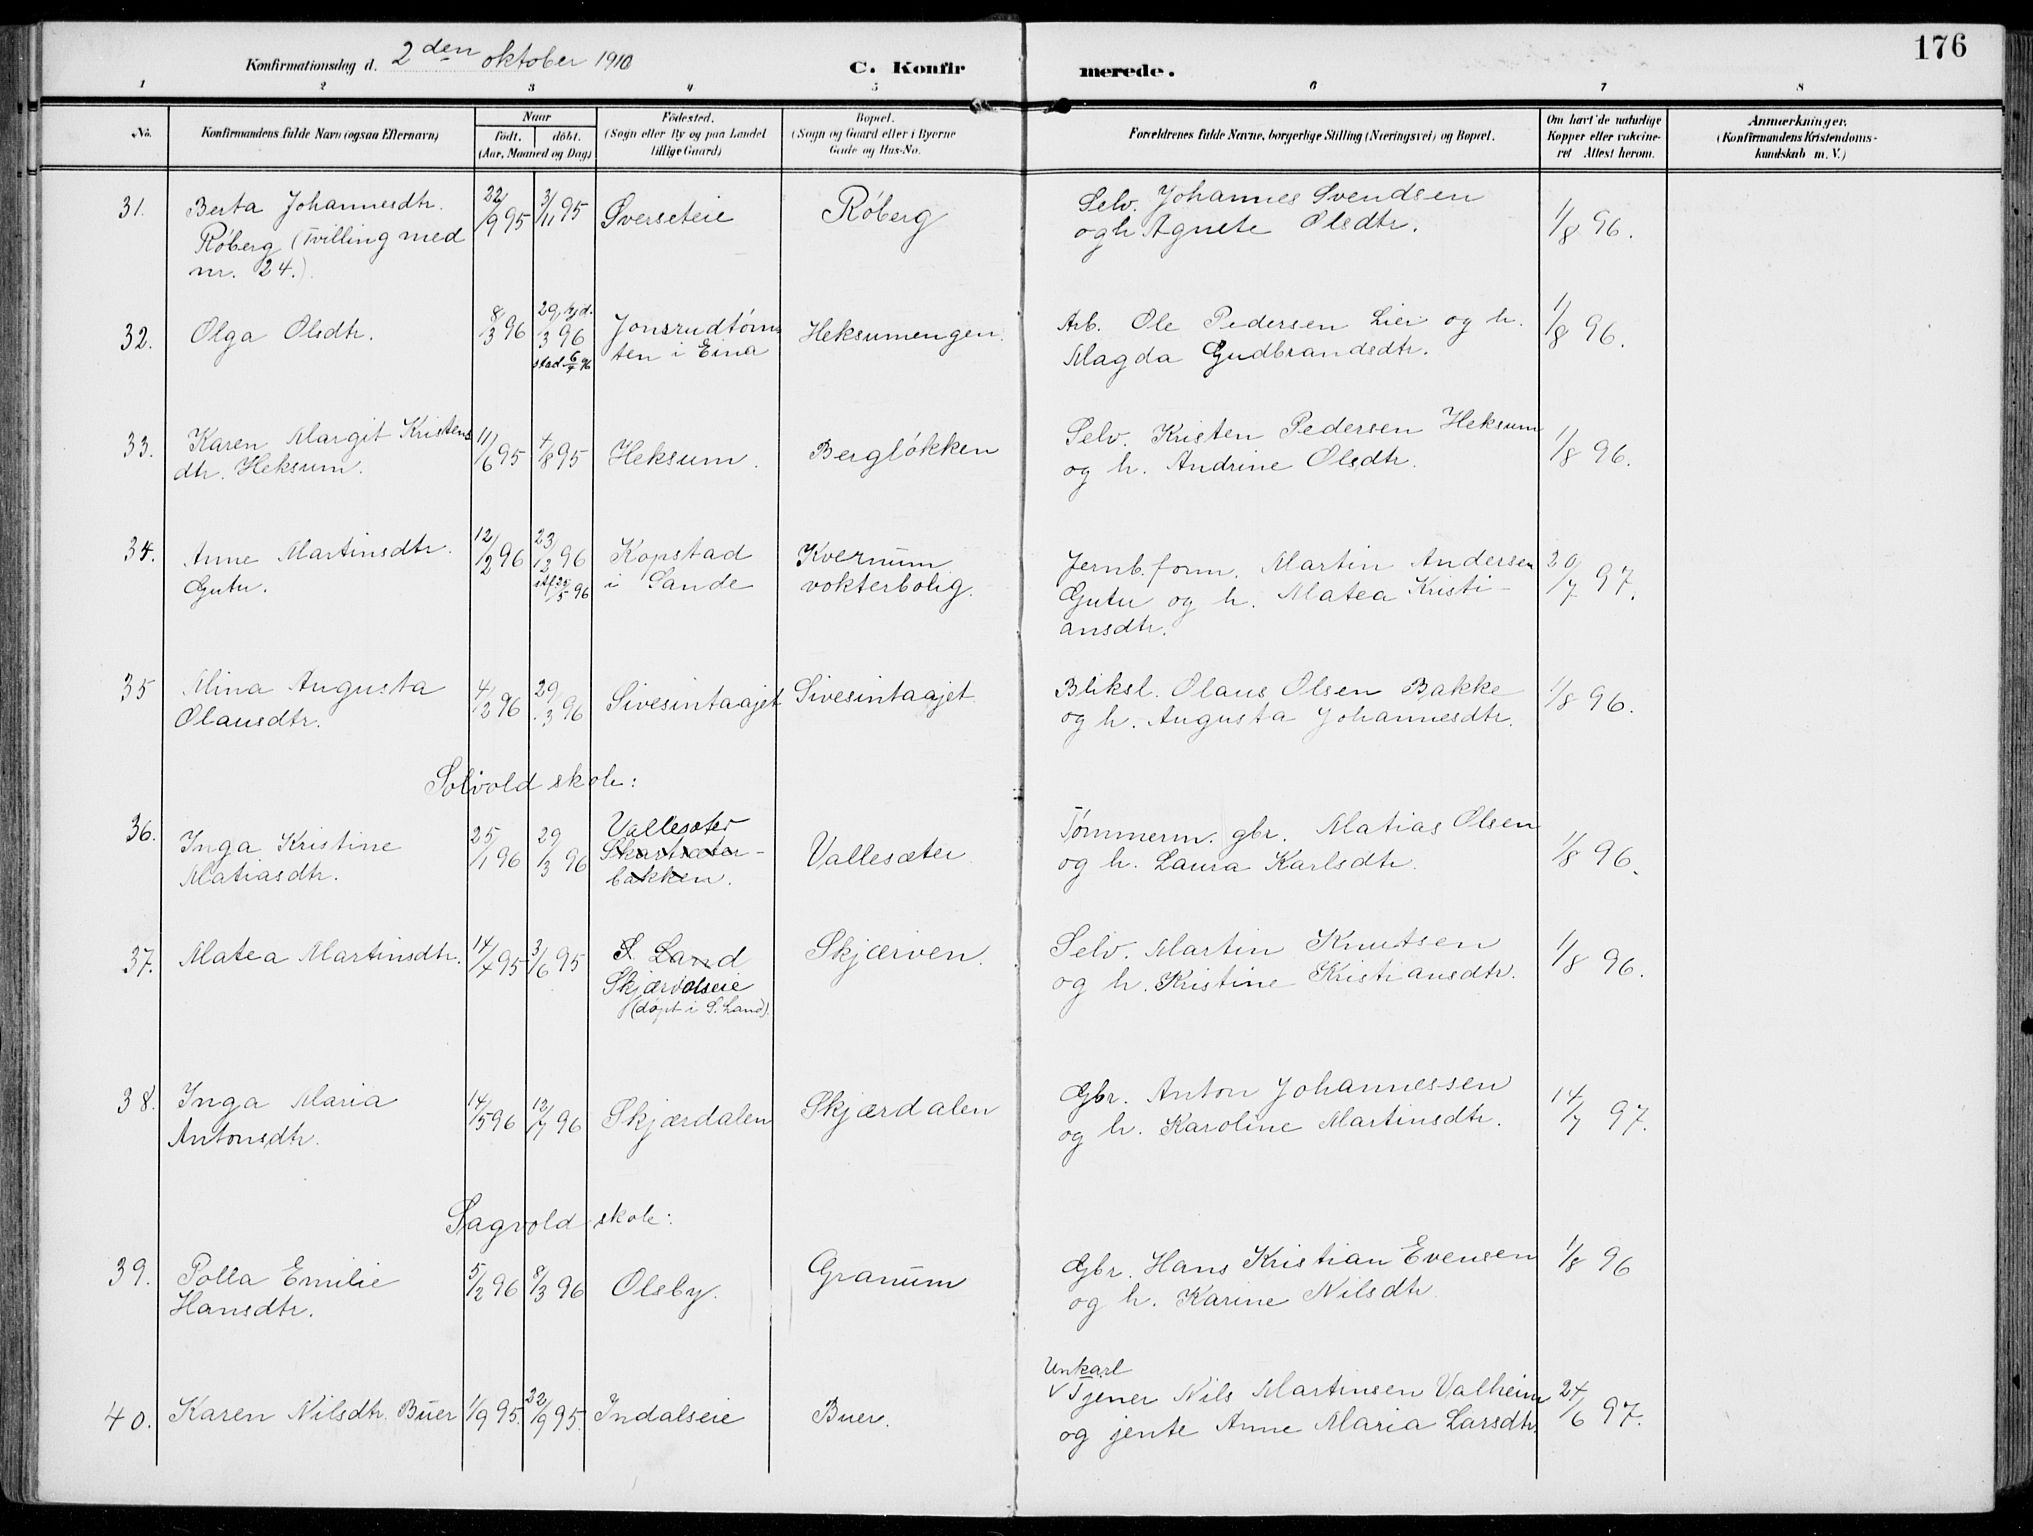 176
Konfirmationsdag d. 2den oktober 1910
C. Konfirmerede.
1 2 3 4 5 6 7 8
No. Konfirmandens fulde Navn (ogsaa Efternavn) Naar Födested. Bopæl. Forældrenes fulde Navne, borgerlige Stilling (Næringsvei) og Bopæl. Om havt de naturlige Anmærkninger.
födt. döbt. (Sogn eller By og paa Landet (Sogn og Gaard eller i Byerne Kopper eller vakcine- (Konfirmandens Kristendoms-
(Aar, Maaned og Dag) tillige Gaard) Gade og Hus-No. ret Attest herom. kundskab m. V.)
31. Berta Johannesdtr. 22/9 95 3/11 95 Sverseteie Røberg Selv. Johannes Svendsen 1/8 96.
Røberg (Tvilling med og h. Agnete Olsdtr.
nr. 24.)
32. Olga Olsdtr. 8/3 96 29/3 96 hjd. Jonsrudtøm Heksumengen. Arb. Ole Pedersen Lier og h. 1/8 96.
stad 6/4 96 ten i Eina Magda Gudbrandsdtr.
33. Karen Margit Kristens 11/6 95 4/8 95 Heksum. Bergløkken Selv. Kristen Pedersen Heksum 1/8 96.
dtr. Heksum. og h. Andrine Olsdtr.
34. Anne Martinsdtr. 12/2 96 23/2 96 Kopstad Kvernum Jernb.form. Martin Andersen 20/7 97.
Gutu. i Sande vokterbolig. Gutu og h. Matea Kristi-
ansdtr.
35 Mina Augusta 4/2 96 29/3 96 Sivesintaajet Sivesintaajet. Bliksl. Olaus Olsen Bakke 1/8 96.
Olausdtr. og h. Augusta Johannesdtr.
Solvold skole:
36. Inga Kristine 25/1 96 29/3 96 Vallesæter Vallesæter. Tømmerm. gbr. Matias Olsen 1/8 96.
Matiasdtr. Skartsæter-
bakken. og h. Laura Karlsdtr.
37. Matea Martinsdtr. 14/4 95 3/6 95 S. Land Skjærven. Selv. Martin Knutsen 1/8 96.
Skjærvolseie og h. Kristine Kristiansdtr.
(døpt i S. Land).
38. Inga Maria 14/5 96 12/7 96 Skjærdalen Skjærdalen Gbr. Anton Johannessen 14/7 97.
Antonsdtr. og h. Karoline Martinsdtr.
Sagvold skole:
39. Polla Emilie 5/2 96 8/3 96 Olsby. Granum Gbr. Hans Kristian Evensen 1/8 96
Hansdtr. og h. Karine Nilsdtr.
Unkarl
40. Karen Nilsdtr. Buer 1/9 95. 22/9 95. Indalseie Buer. Tjener Nils Martinsen Valheim 24/6 97.
og jente Anne Maria Larsdtr.